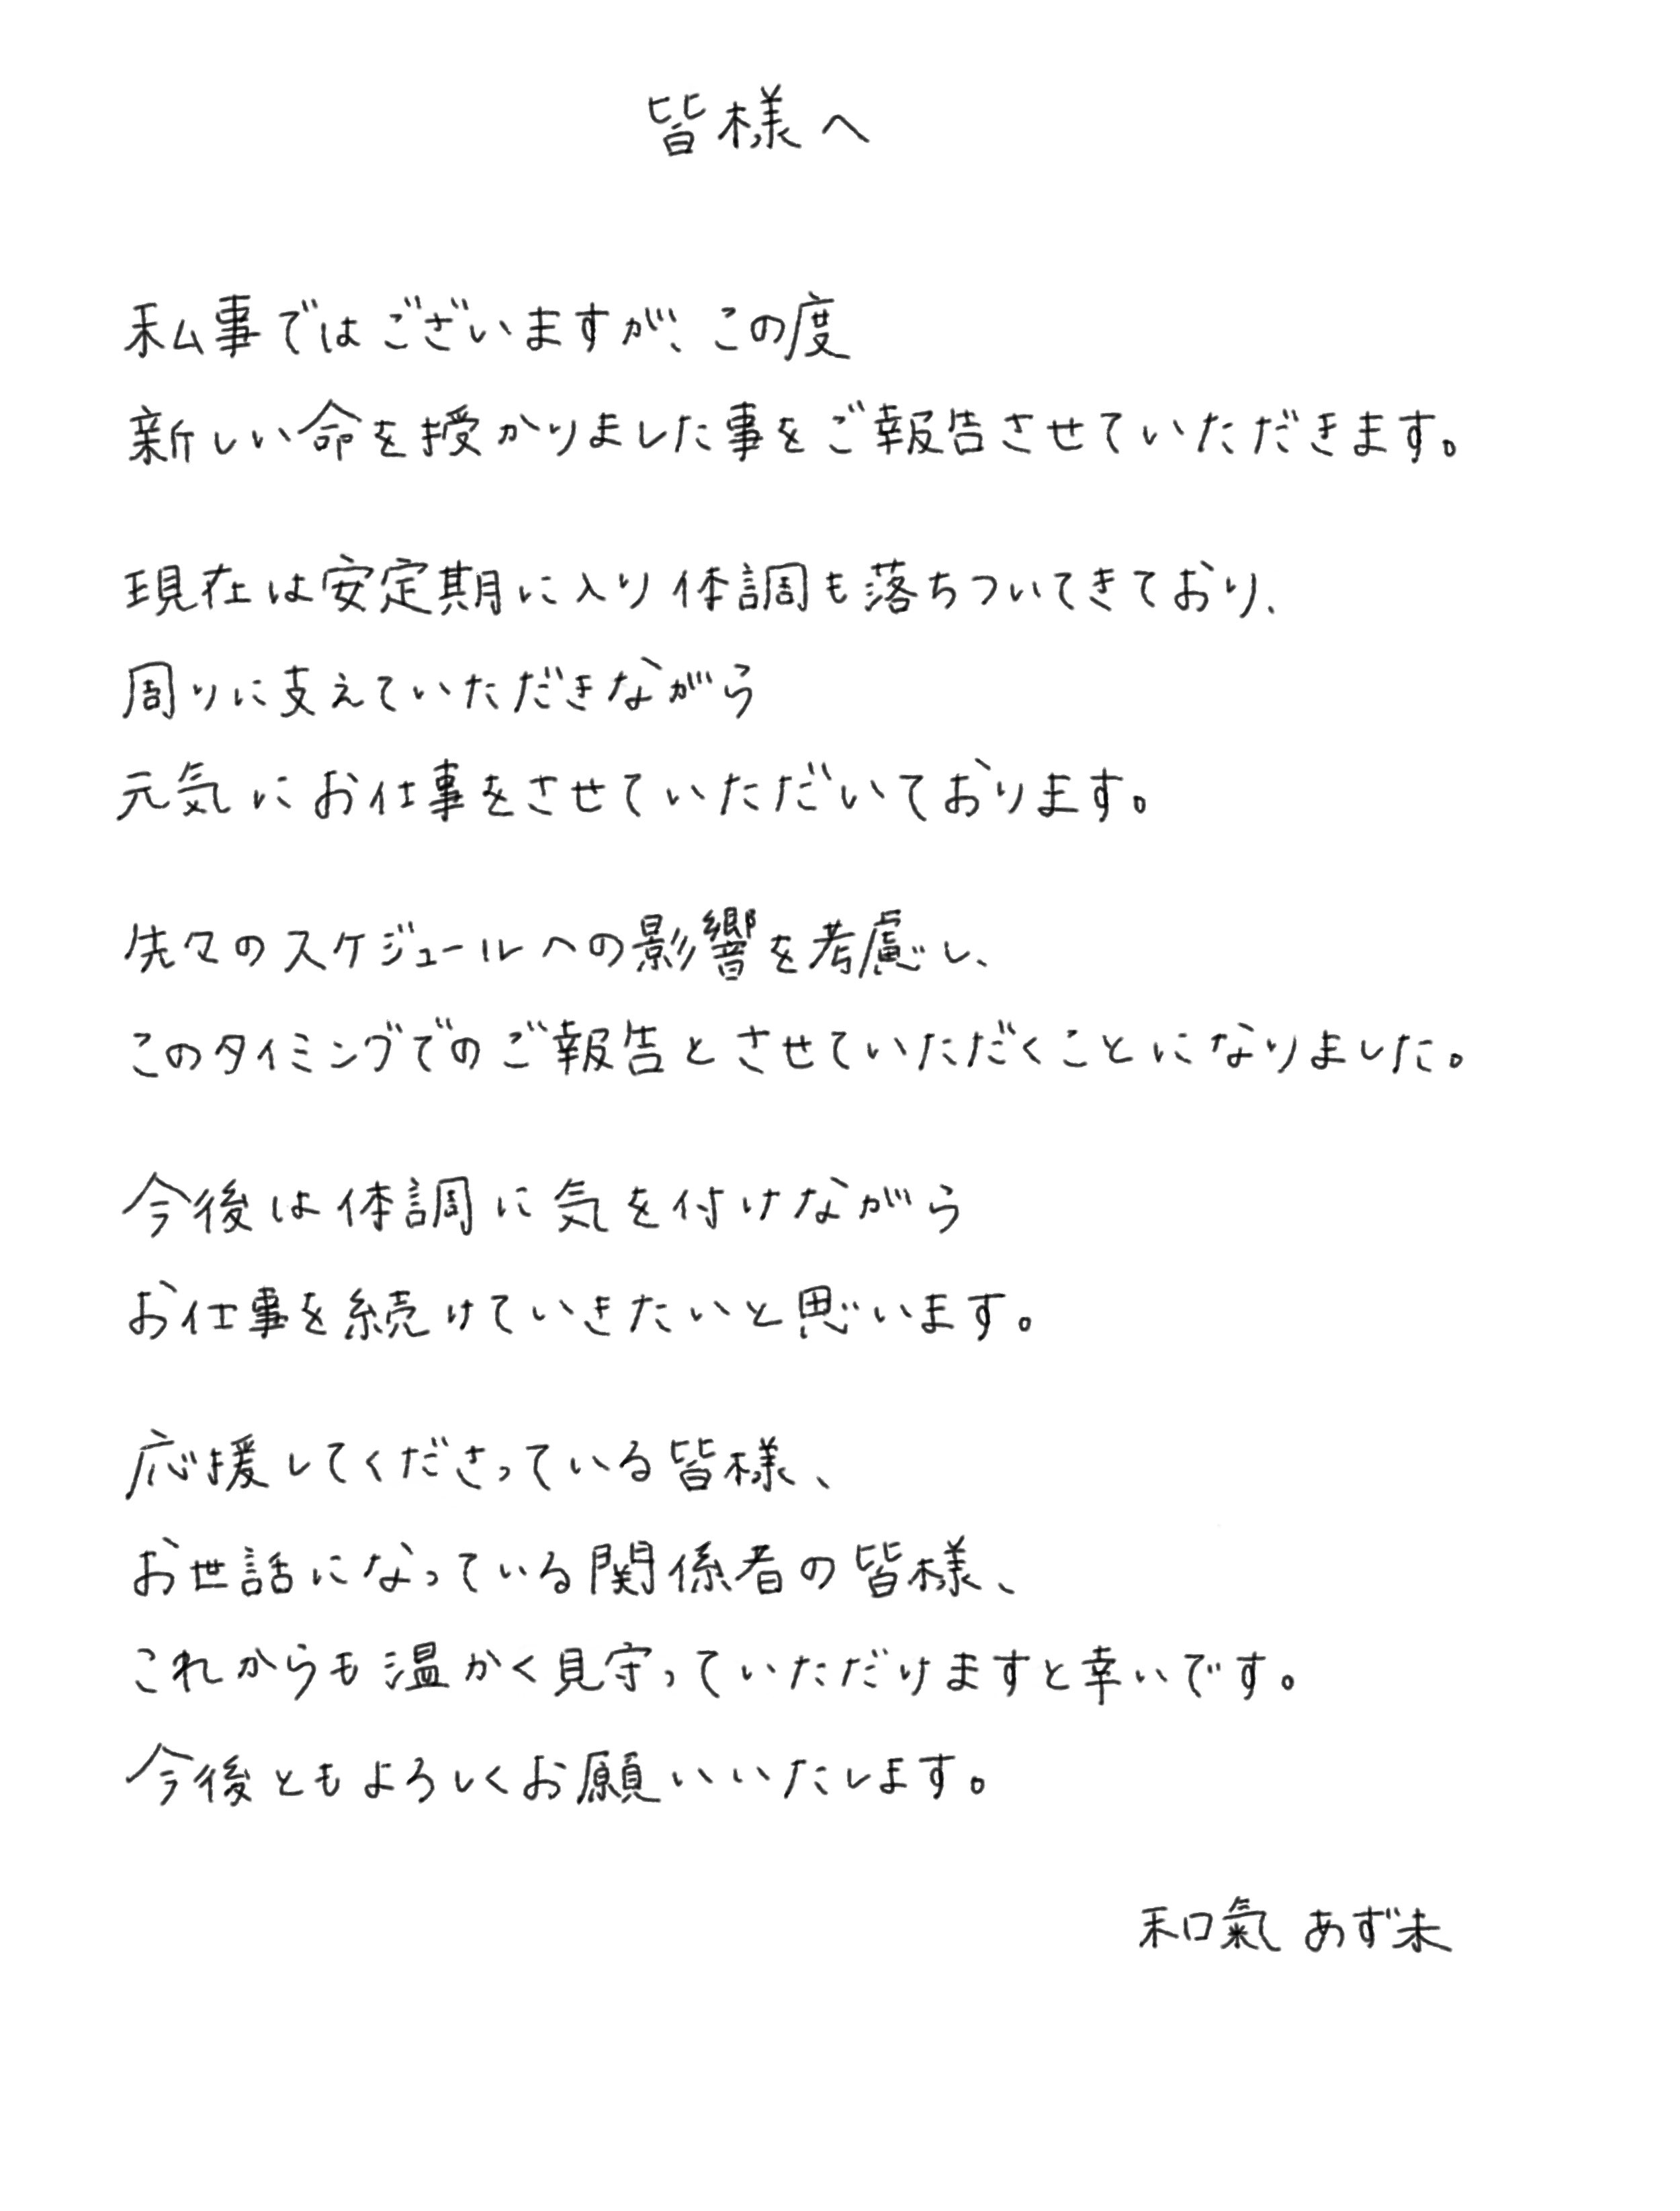 皆様へ
私事ではございますが、この度
新しい命を授かりました事をご報告させていただきます。
現在は安定期に入り体調も落ちついてきており、
周りに支えていただきながら
元気にお仕事をさせていただいております。
先々のスケジュールへの影響を考慮し、
このタイミングでのご報告とさせていただくことになりました。
今後は体調に気を付けながら
お仕事を続けていきたいと思います。
応援してくださっている皆様、
お世話になっている関係者の皆様、
これからも温かく見守っていただけますと幸いです。
今後ともよろしくお願いいたします。
和氣 あず未